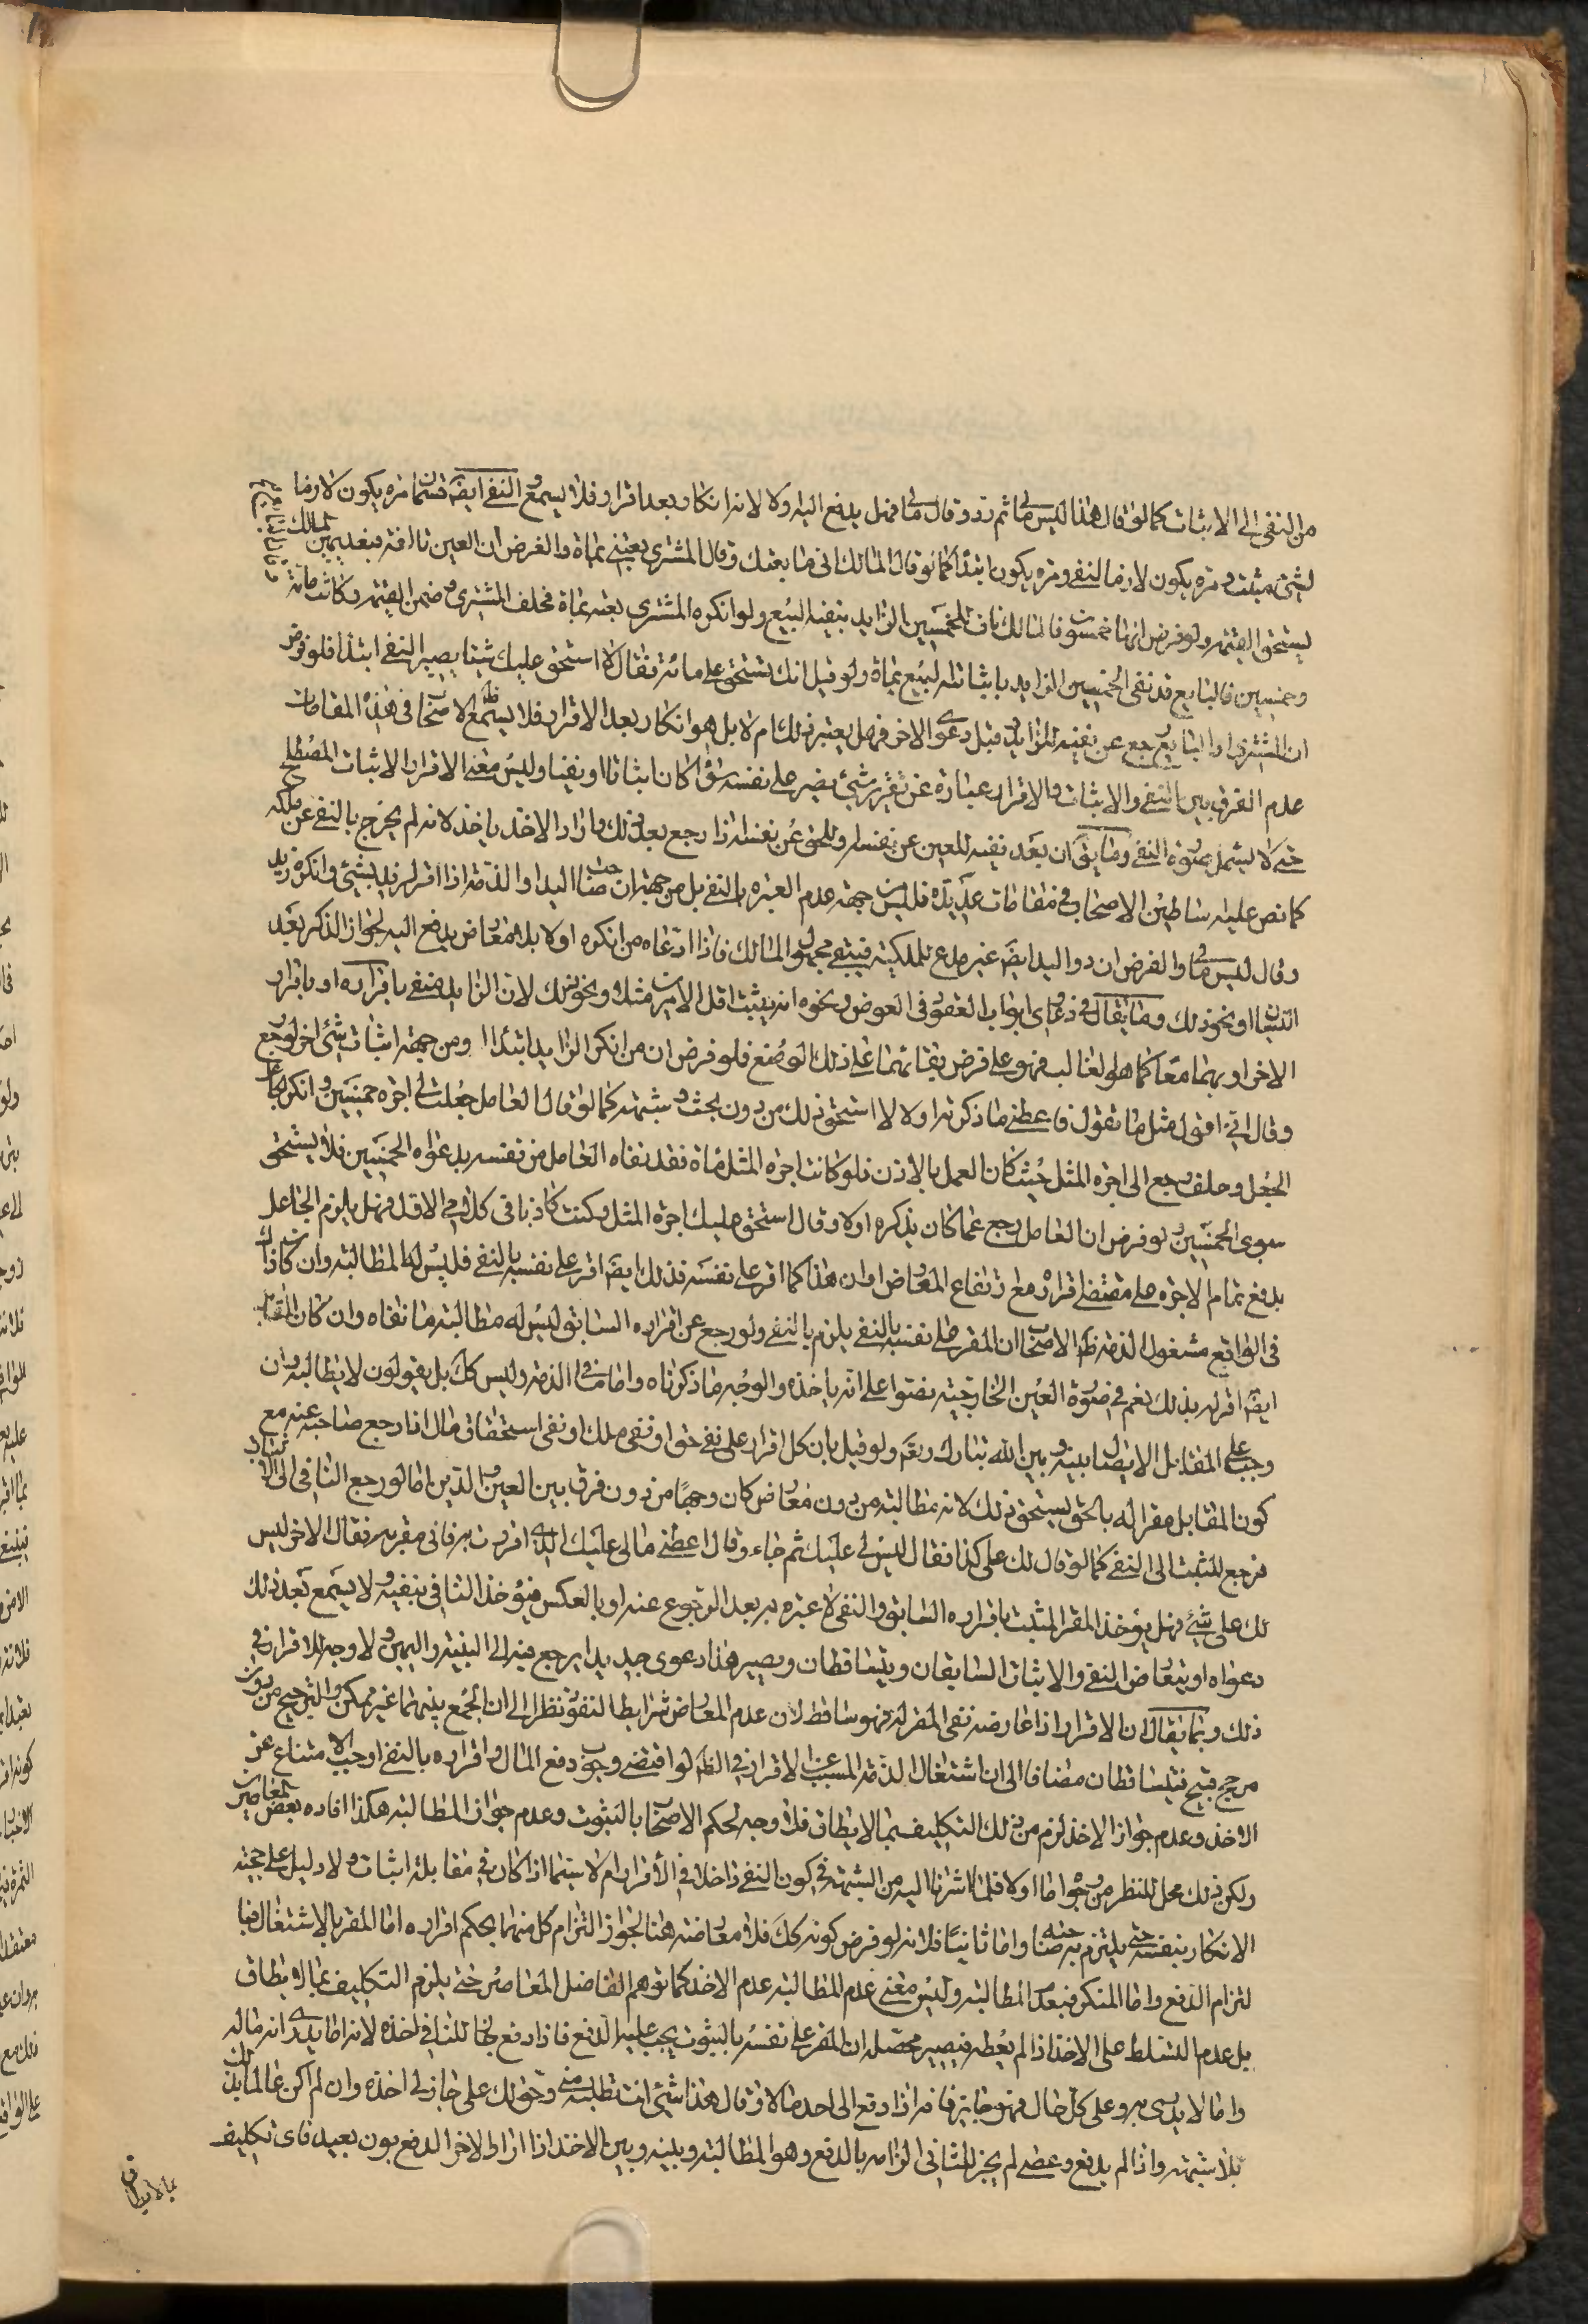 من النفي الى الاثبات كما لو قال هذا ليس لي ثم رد وقال مالي فهل يدفع اليه او لا لانه انكار وبعد اقرار فلا يسمع والنفي ايضا قسمان مرة يكون لازما
لشيء مثبت ومرة يكون لازما النفي ومرة يكون ابتداء كما لو قال المالك اني ما بعتك وقال المشتري بعتني بمائة والغرض ان العين تالفة فبعد يمين المالك
يستحق القيمة ولو فرض انها خمسون فالمالك ناف للخمسين الزايد بنفيه البيع ولو انكره المشتري بعته بمائة فحلف المشتري وضمن القيمة وكانت مائة
وخمسين فالبايع قد نفى الخمسين الزايد باثباته البيع بمائة ولو قيل انك تستحق علي مائة فقال لا استحق عليك شيئا يصير النفي ابتداء فلو فرض
ان المشتري او البايع رجع عن نفيه الزايد قبل دعوى الاخر فهل يعتبر ذلك ام لا بل هو انكار بعد الاقرار فلا يسمع ظ الاصحاب في هذه المقامات
عدم الفرق بين النفي والاثبات والاقرار عبارة عن تقرير شيء يضر على نفسه سواء كان اثباتا او نفيا وليس معنى الاقرار الاثبات المصطلح
حتى لا يشمل صورة النفي وما يقال ان بعد نفيه للعين عن نفسه وللحق عن نفسه اذا رجع بعد ذلك واراد الاخذ ياخذ لانه لم يخرج بالنفي عن ملكه
كما نص عليه اساطين الاصحاب في مقامات عديدة فليس من جهة عدم العبرة بالنفي بل من جهة ان صاحب اليد او الذمة اذا اقر لزيد بشيء وانكره زيد
وقال ليس مالي والفرض ان ذو اليد ايضا غير مدع للملكية فيبقى مجهول المالك فاذا ادعاه من انكره اولا بلا معارض يدفع اليه لجواز الذكر بعد
النسيان او نحو ذلك وما يقال في دعاوى ابواب العقود في العوض ونحوه انه يثبت اقل الامرين مثلا ونحو ذلك لان الزايد منفي باقراره او باقرار
الاخر او بهما معا كما هو الغالب فهو على فرض بقائهما على ذلك الوضع فلو فرض ان من انكر الزايد ابتداء ومن جهة اثبات شيء اخر لو رجع
وقال اني اقول مثل ما تقول فاعطني ما ذكرته اولا لا استحق ذلك من دون بحث وشبهة كما لو قال العامل جعلت لي اجرة خمسين وانكر الجاعل
الجعل وحلف رجع الى اجرة المثل حيث كان العمل بالاذن فلو كانت اجرة المثل مائة فقد نفاه العامل من نفسه بدعواه الخمسين فلا يستحق
سوى الخمسين ولو فرض ان العامل رجع عما كان يذكره اولا وقال استحق عليك اجرة المثل وكنت كاذبا في كلامي الاول فهل يلزم الجاعل
بدفع تمام الاجرة على مقتضى اقراره مع ارتفاع المعارض او ان هذا كما اقر على نفسه فذلك ايضا اقر على نفسه بالنفي فليس له المطالبة وان كان ذاك
في الواقع مشغول الذمة ظ الاصحاب ان المقر على نفسه بالنفي يلزم بالنفي ولو رجع عن اقراره السابق ليس له مطالبة ما نفاه وان كان المقابل
ايضا اقر له بذلك نعم في صورة العين الخارجية نصوا على انه ياخذه والوجه ما ذكرناه واما ما في الذمة وليس كك بل يقولون لا يطالبه وان
وجب على المقابل الايصال بينه وبين الله تبارك وتعالى ولو قيل بان كل اقرار على نفي حق او نفي ملك او نفي استحقاق مال اذا رجع صاحبه عنه مع
كون المقابل مقرا له بالحق يستحق ذلك لانه مطالبة من دون معارض كان وجها من دون فرق بين العين والدين اما لو رجع النافي الى الاثبات
فرجع المثبت الى النفي كما لو قال لك علي كذا فقال ليس لي عليك ثم جاء وقال اعطني مالي عليك الذي اقررت به فاني مقر به فقال الاخر ليس
لك علي شيء فهل يؤخذ المقر المثبت باقراره السابق والنفي لا عبرة به بعد الرجوع عنه او بالعكس فيؤخذ النافي بنفيه ولا يسمع بعد ذلك
دعواه او يتعارض النفي والاثبات السابقان ويتساقطان ويصير هذا دعوى جديدا يرجع فيه الى البينة واليمين ولا وجه للاقرار في
ذلك وربما يقال ان الاقرار اذا عارضه نفي المقر له فهو ساقط لان عدم المعارض شرايط النفوذ نظرا الى ان الجمع بينهما غير ممكن والترجيح من دون
مرجح قبيح فيتساقطان مضافا الى ان اشتغال الذمة المسبب عن الاقرار في الظ لو اقتضى وجوب دفع المال واقراره بالنفي اوجب الامتناع عن
الاخذ وعدم جواز الاخذ لزم من ذلك التكليف بما لا يطاق فلا وجه لحكم الاصحاب بالثبوت وعدم جواز المطالبة هكذا افاده بعض المعاصرين
ولكن ذلك محل للنظر من وجوه اما اولا فلما اشرنا اليه من الشبهة في كون النفي داخلا في الأقرار ام لا سيما اذا كان في مقابلة اثبات ولا دليل على حجية
الانكار بنفسه حتى يلتزم به صاحبه واما ثانيا فلانه لو فرض كونه كك فلا معارضة هنا لجواز التزام كل منهما بحكم اقراره اما المقر بالاشتغال فبا
لتزام الدفع واما المنكر فبعدم المطالبة وليس معنى عدم المطالبة عدم الاخذ كما توهم الفاضل المعاصر حتى يلزم التكليف بما لا يطاق
بل عدم التسلط على الاخذ اذا لم يعطه فيصير محصله ان المقر على نفسه بالثبوت يجب عليه الدفع فاذا دفع جاز للنافي اخذه لانه اما يدري انه ماله
واما لا يدري به وعلى كل حال فهو جايز فانه اذا دفع الى احد مالا وقال هذا شيء انت تطلبه مني وحق لك علي جاز له اخذه وان لم اكن عالما بذلك
بلا شبهة واذا لم يدفع وعصى لم يجز للنافي الزامه بالدفع وهو المطالبة وبينه وبين الاخذ اذا اراد الاخر الدفع بون بعيد فاي تكليف
بما لا يطاق